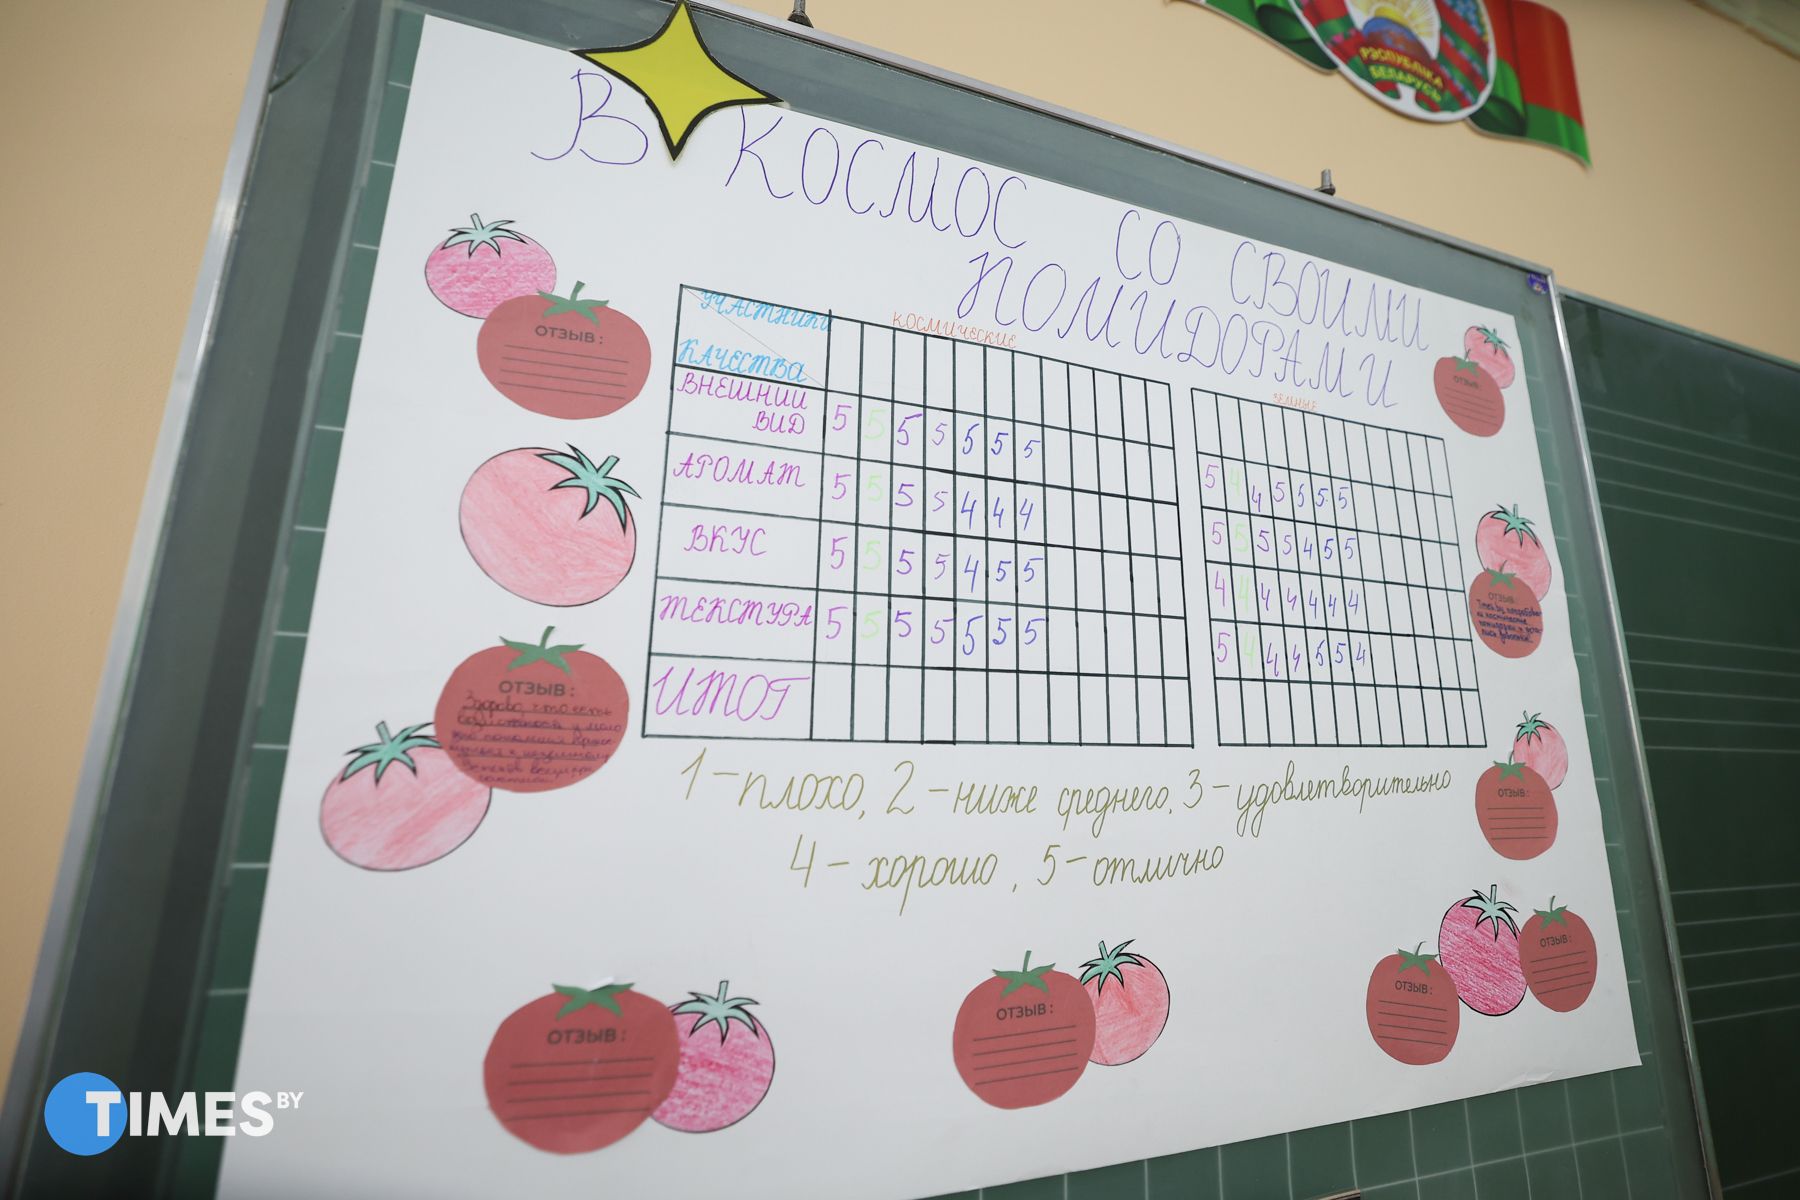 РЭСПУБЛІКА
БЕЛАРУСЬ
В КОСМОС СО СВОИМИ
ПОМИДОРАМИ
УЧАСТНИКИ
КАЧЕСТВА
КОСМИЧЕСКИЕ
ЗЕМНЫЕ
ВНЕШНИЙ
ВИД
5 5 5 5 5 5 5
5 4 4 5 5 5 5
АРОМАТ
5 5 5 5 4 4 4
5 5 5 5 4 5 5
ВКУС
5 5 5 5 4 5 5
4 4 4 4 4 4 4
ТЕКСТУРА
5 5 5 5 5 5 5
5 4 4 4 5 5 4
ИТОГ
1 – плохо, 2 – ниже среднего, 3 – удовлетворительно
4 – хорошо, 5 – отлично
ОТЗЫВ:
ОТЗЫВ:
Здорово, что есть
ОТЗЫВ:
ОТЗЫВ:
ОТЗЫВ:
Times.by
ОТЗЫВ:
ОТЗЫВ:
ОТЗЫВ:
ОТЗЫВ:
TIMES BY